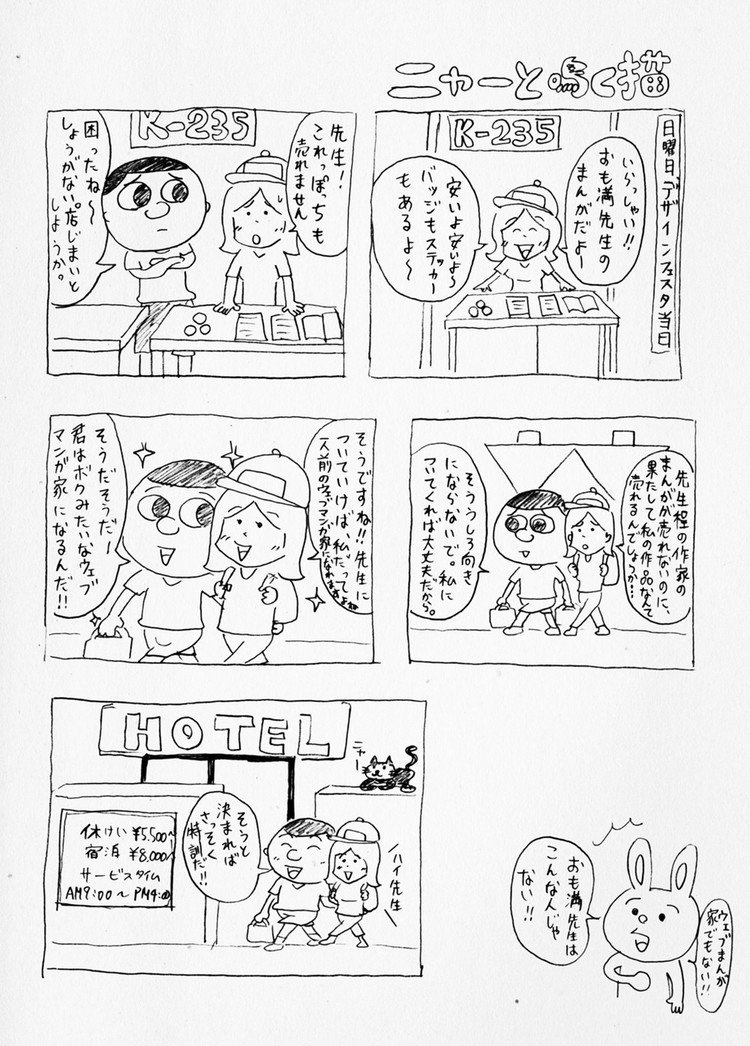 ニャーと鳴く描
日曜日、デザインフェスタ当日
K-235
いらっしゃい!!
おも満先生の
まんがだよー
安いよ安いよ〜
バッジもステッカー
もあるよ〜
K-235
先生!
これっぽっちも
売れません
困ったね〜
しょうがない。店じまいと
しようか。
先生程の作家の
まんがが売れないのに、
果たして私の作品なんて
売れるんでしょうか…
そううしろ向き
にならないで。私に
ついてくれば大丈夫だから。
そうですね!!先生に
ついていけば私だって
一人前のウェブマンガ家になれますよね
そうだそうだー
君はボクみたいなウェブ
マンガ家になるんだ!!
HOTEL
ニャー
休けい ¥5,500〜
宿泊 ¥8,000〜
サービスタイム
AM9:00〜PM4:00
そうと
決まれば
さっそく
特訓だ!!
ハイ先生
おも満先生は
こんな人じゃ
ない!!
ウェブまんが
家でもない!!